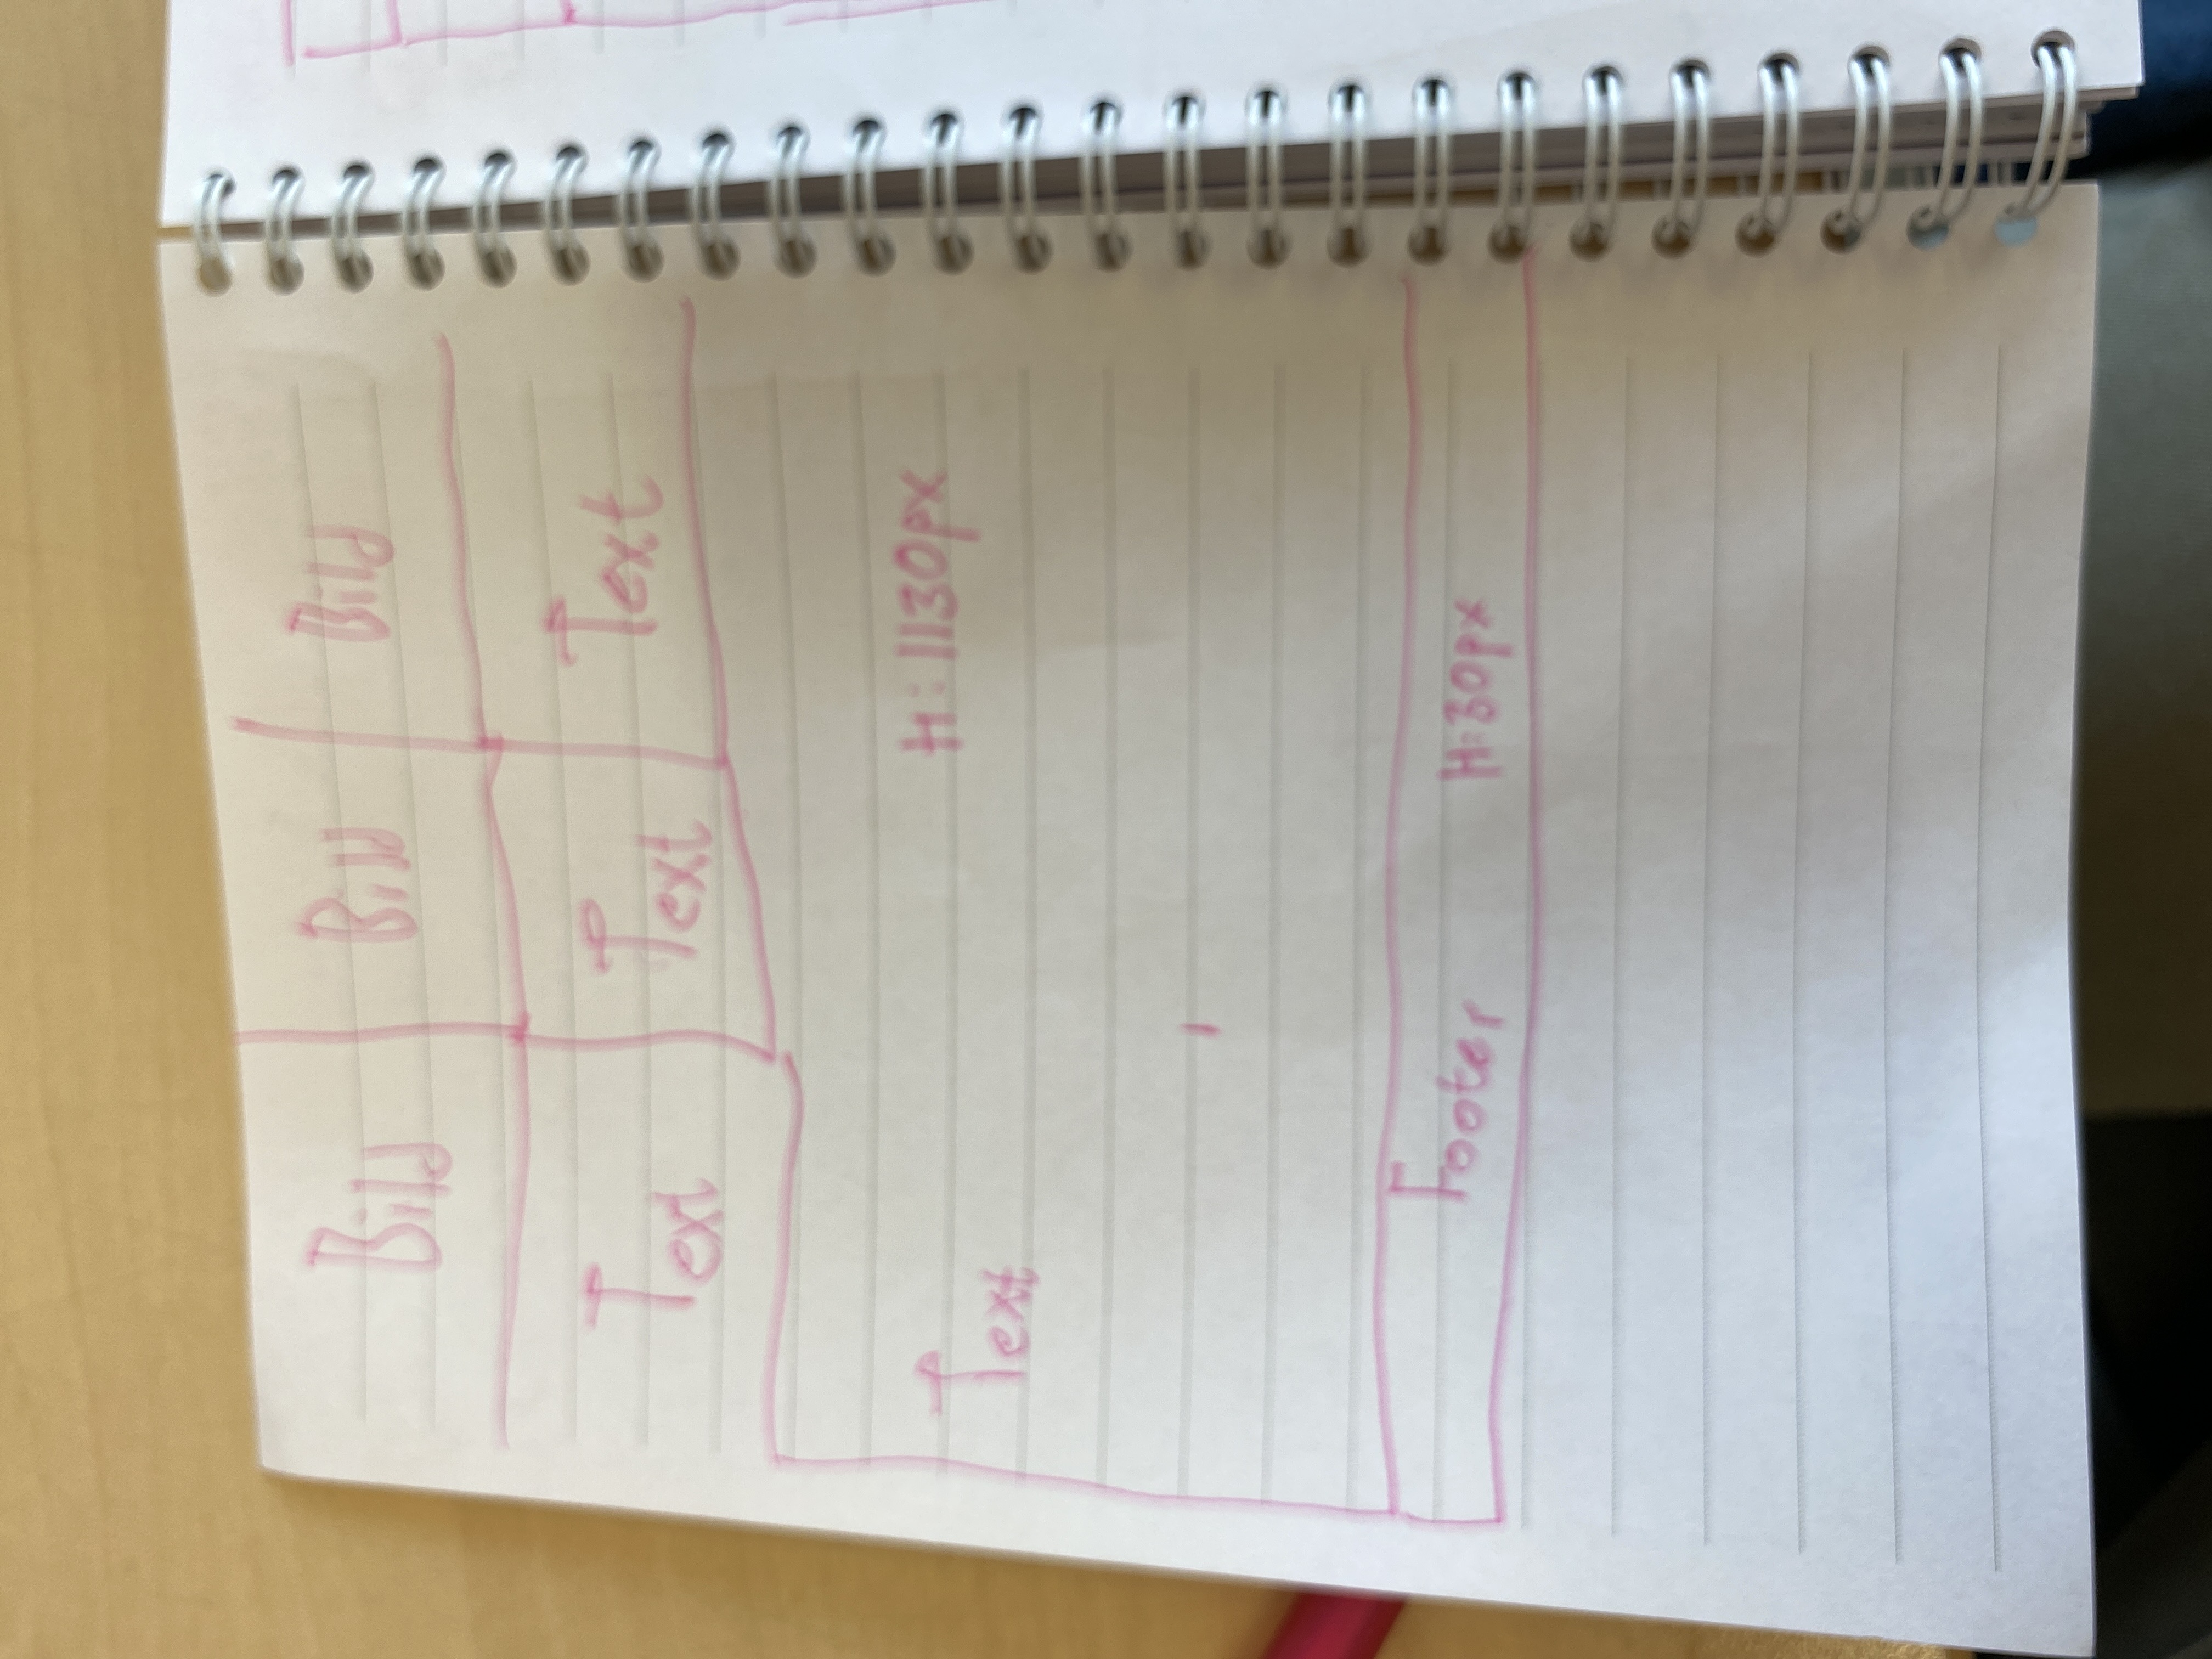 Bild Bild Bild
Text Text Text
Text H: 1130px
Footer H: 30px